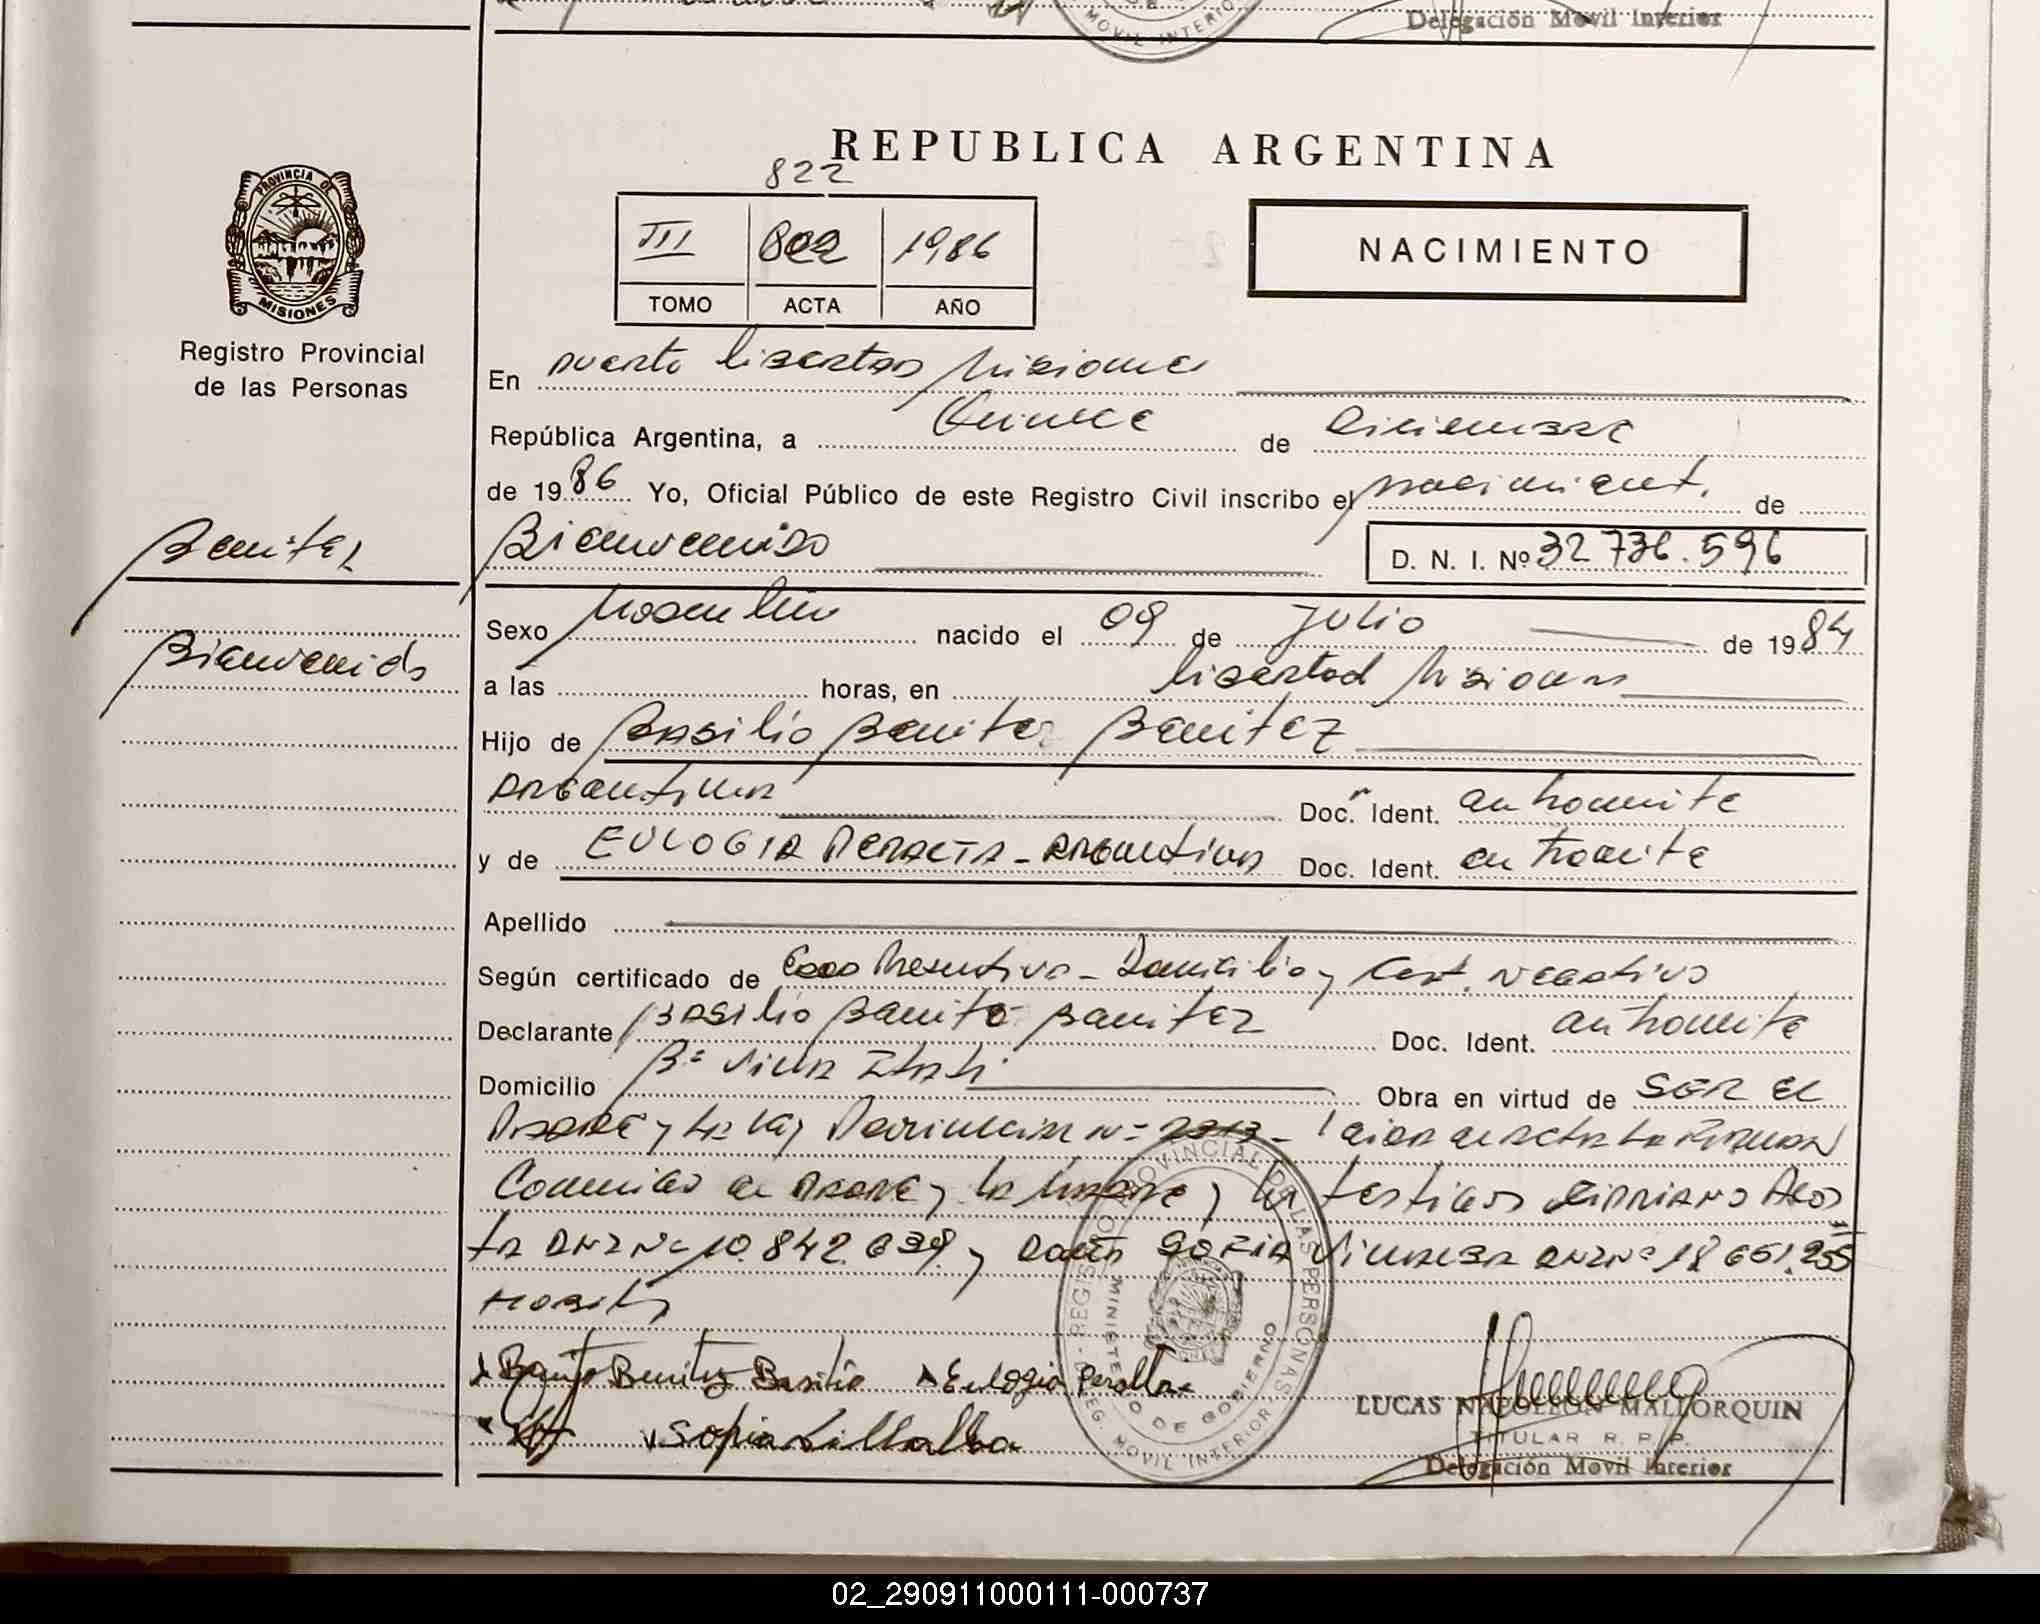 MOVIL INTERIOR
Delegación Movil Interior
REPUBLICA ARGENTINA
822
III 802 1986
TOMO ACTA AÑO
NACIMIENTO
PROVINCIA DE
MISIONES
Registro Provincial
de las Personas
En Puerto Libertad Misiones
República Argentina, a Quince de Diciembre
de 1986 Yo, Oficial Público de este Registro Civil inscribo el nacimient. de
Benitez
Bienvenido
D. N. I. Nº 32 736.596
Bienvenido
Sexo Masculino nacido el 09 de Julio de 1984
a las horas, en Libertad Misiones
Hijo de Basilio Benitez Benitez
Argentina Doc. Ident. en tramite
y de EULOGIA PERALTA - Argentina Doc. Ident. en tramite
Apellido
Según certificado de Presuntiva - Domicilio y Cert. Negativo
Declarante Basilio Benito Benitez Doc. Ident. en tramite
Domicilio Bº Villa Itati Obra en virtud de SER EL
PADRE y la Ley Provincial Nº 2213 - Leida el acta la firman
Conmigo el Padre y la Madre y los testigos Cipriano Acos
ta DNI Nº 10.842.639 y Doña SOFIA Villalba DNI Nº 18 661.255
Habiles
Benito Benitez Basilio Eulogia Peralta
Sofia Villalba
REGISTRO PROVINCIAL DE LAS PERSONAS
MINISTERIO DE GOBIERNO
REG. MOVIL INTERIOR
LUCAS NAPOLEON MALLORQUIN
TITULAR R. P. P.
Delegación Movil Interior
02_290911000111-000737